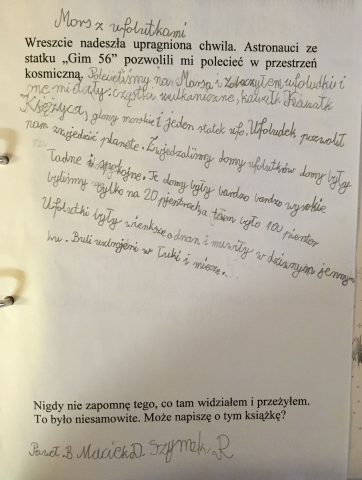 Mars z ufolutkami
Wreszcie nadeszła upragniona chwila. Astronauci ze
statku „Gim 56” pozwolili mi polecieć w przestrzeń
kosmiczną. Polecieliśmy na Marsa i zobaczyłem ufoludki i
inne mietały: cząstka wulkaniczne, kawałk Kawałk
Księżyca, glony morskie i jeden statek ufo. Ufoludek pozwolił
nam zwjedzić planete. Zwjedzaliśmy domy ufolutków domy były
ładne i spokojne. Te domy były bardzo bardzo wysokie
byliśmy tylko na 20 pientrach a tam było 100 pienter
Ufolutki były wienksze odnas i muwiły w dziwnym jenzy
ku. Buli uzbrojeni w łuki i miecze.
Nigdy nie zapomnę tego, co tam widziałem i przeżyłem.
To było niesamowite. Może napiszę o tym książkę?
Paweł.B Maciek.D. Szymek.R